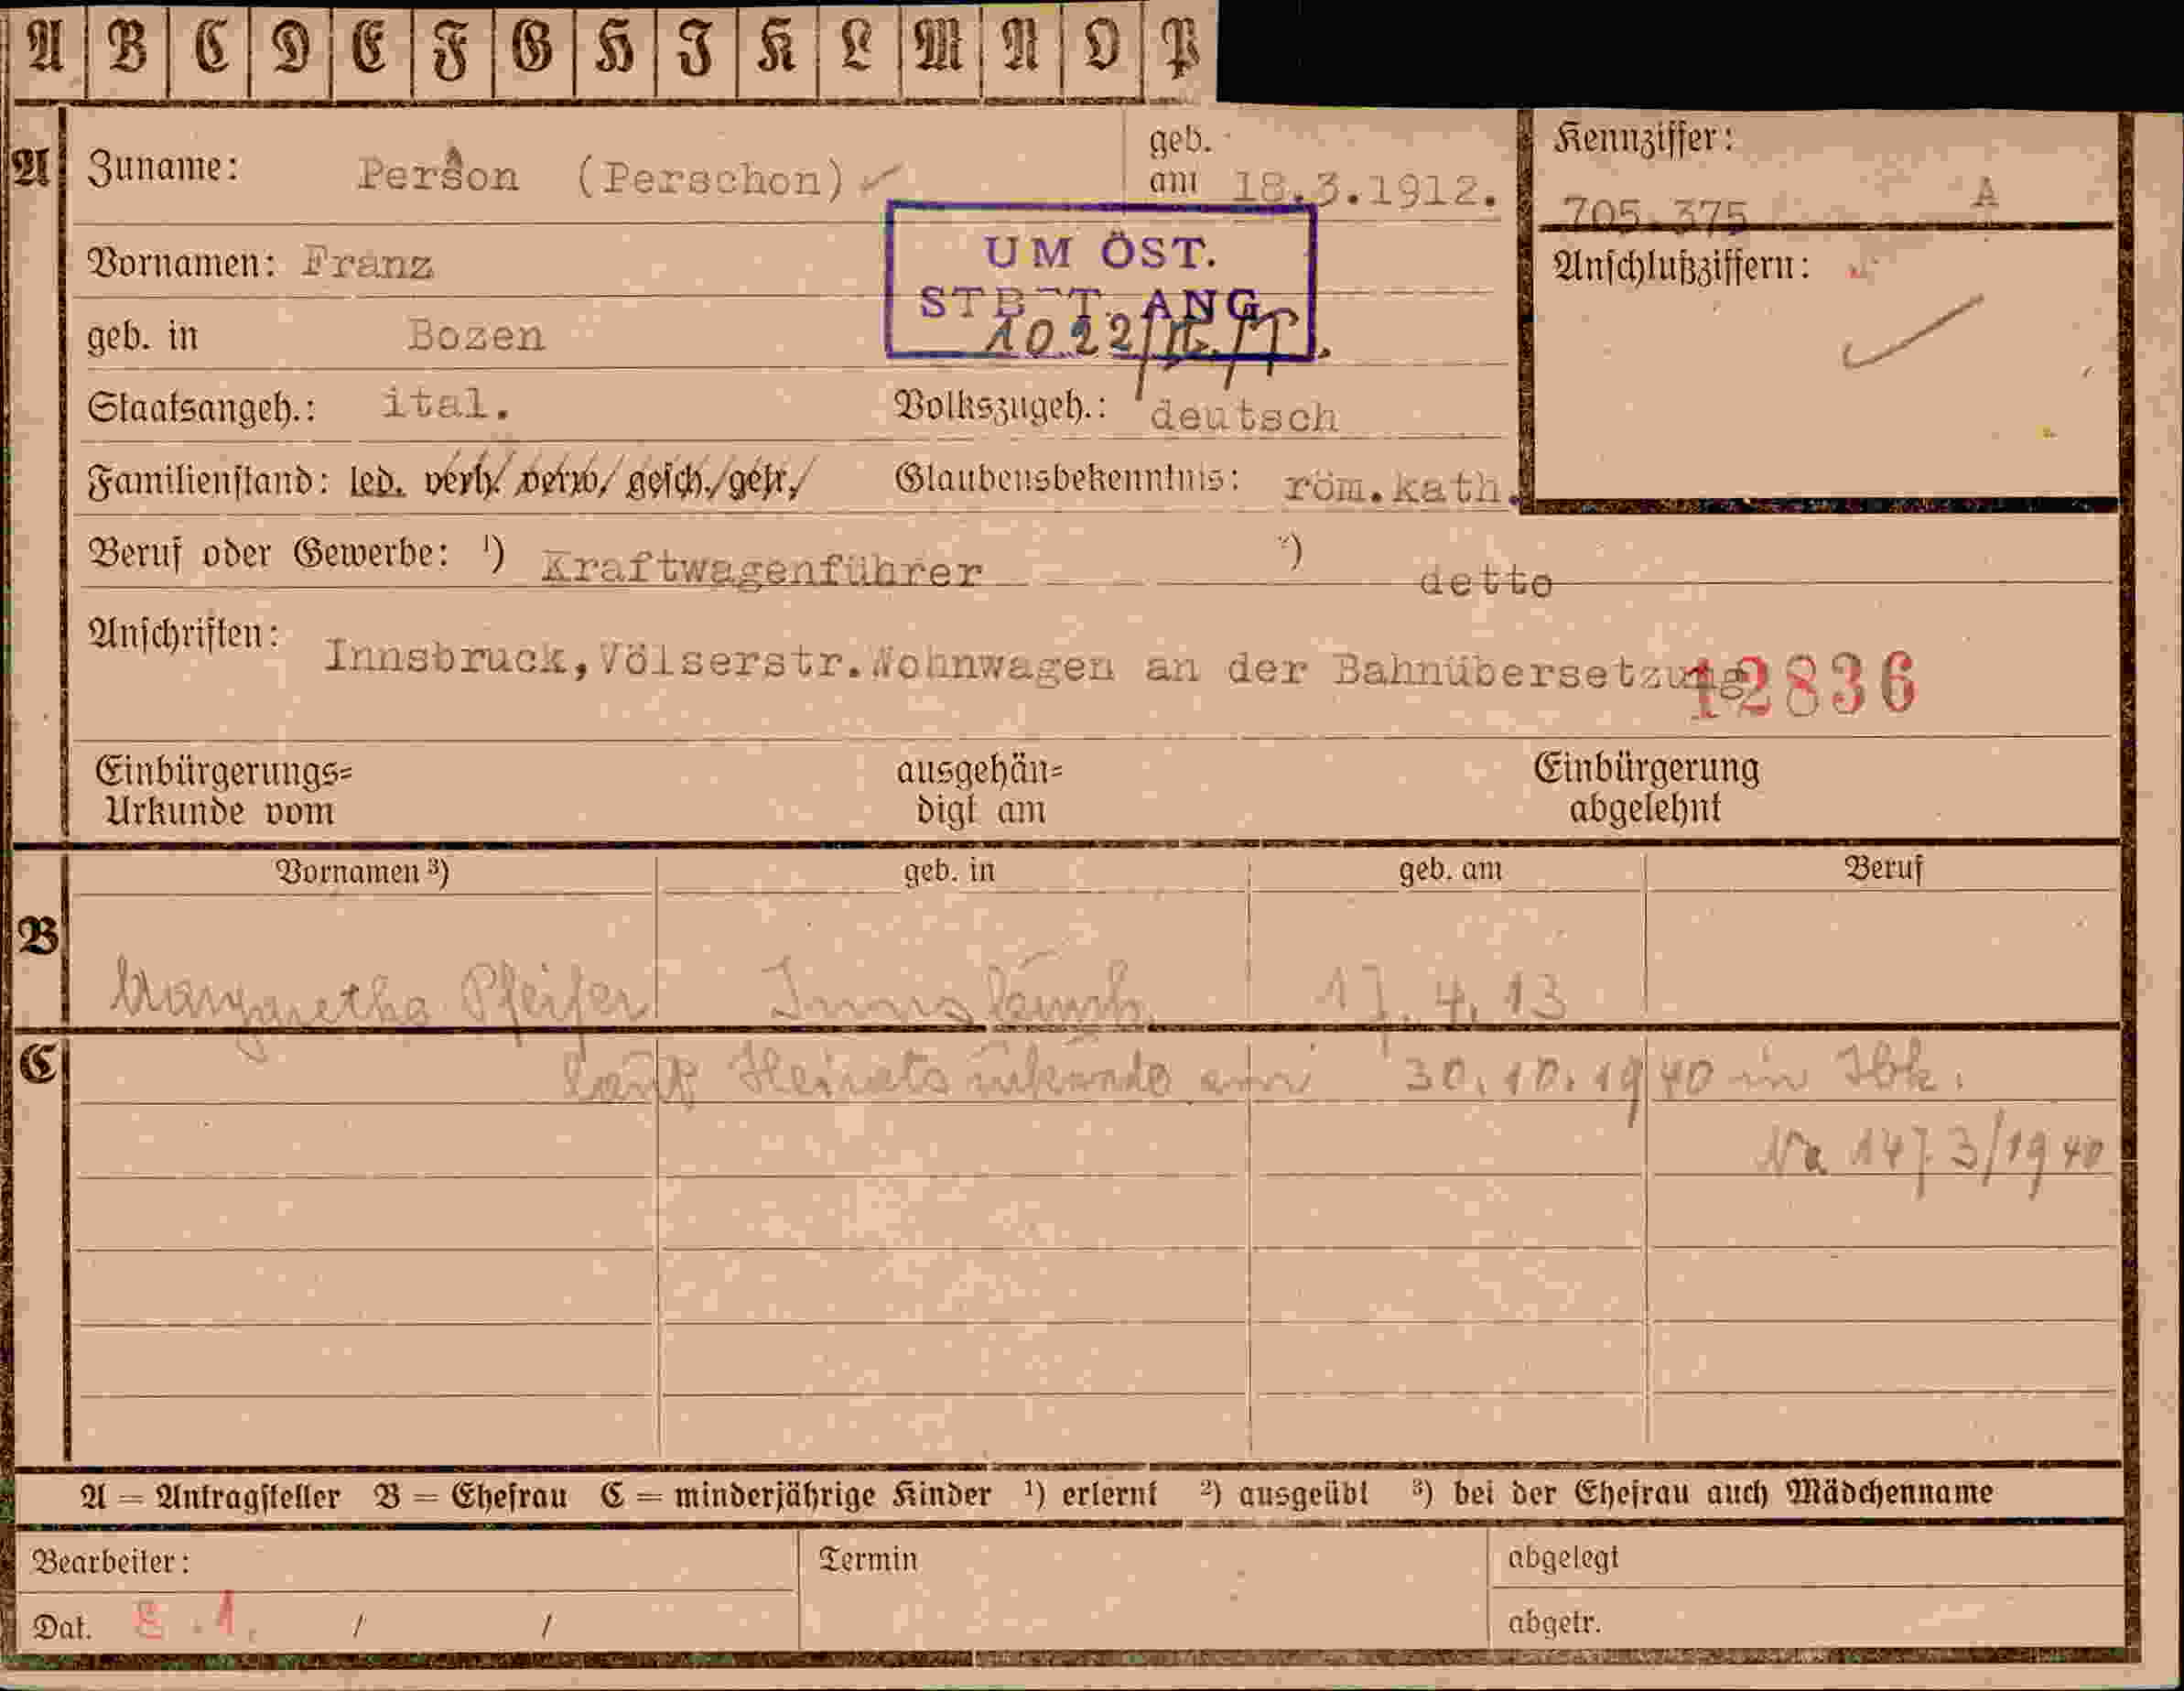 A B C D E F G H I K L M N O P
A Zuname: Person (Perschon) geb. am 18.3.1912. Kennziffer: 705.375 A
Vornamen: Franz Anschlußziffern:
UM ÖST.
ST ANG
1022/II./T.
geb. in Bozen
Staatsangeh.: ital. Volkszugeh.: deutsch
Familienstand: led. verh. verw. gesch./getr. Glaubensbekenntnis: röm.kath.
Beruf oder Gewerbe: ¹) Kraftwagenführer ²) detto
Anschriften: Innsbruck,Völserstr.Wohnwagen an der Bahnübersetzung
12836
Einbürgerungs= ausgehän= Einbürgerung
Urkunde vom digt am abgelehnt
Vornamen ³) geb. in geb. am Beruf
B Margaretha Pfeifer Innsbruck 17. 4. 13
C laut Heiratsurkunde am 30.10.1940 in Ibk.
1473/1940
A = Antragsteller B = Ehefrau C = minderjährige Kinder ¹) erlernt ²) ausgeübt ³) bei der Ehefrau auch Mädchenname
Bearbeiter: Termin abgelegt
Dat. 8.1. / / abgetr.